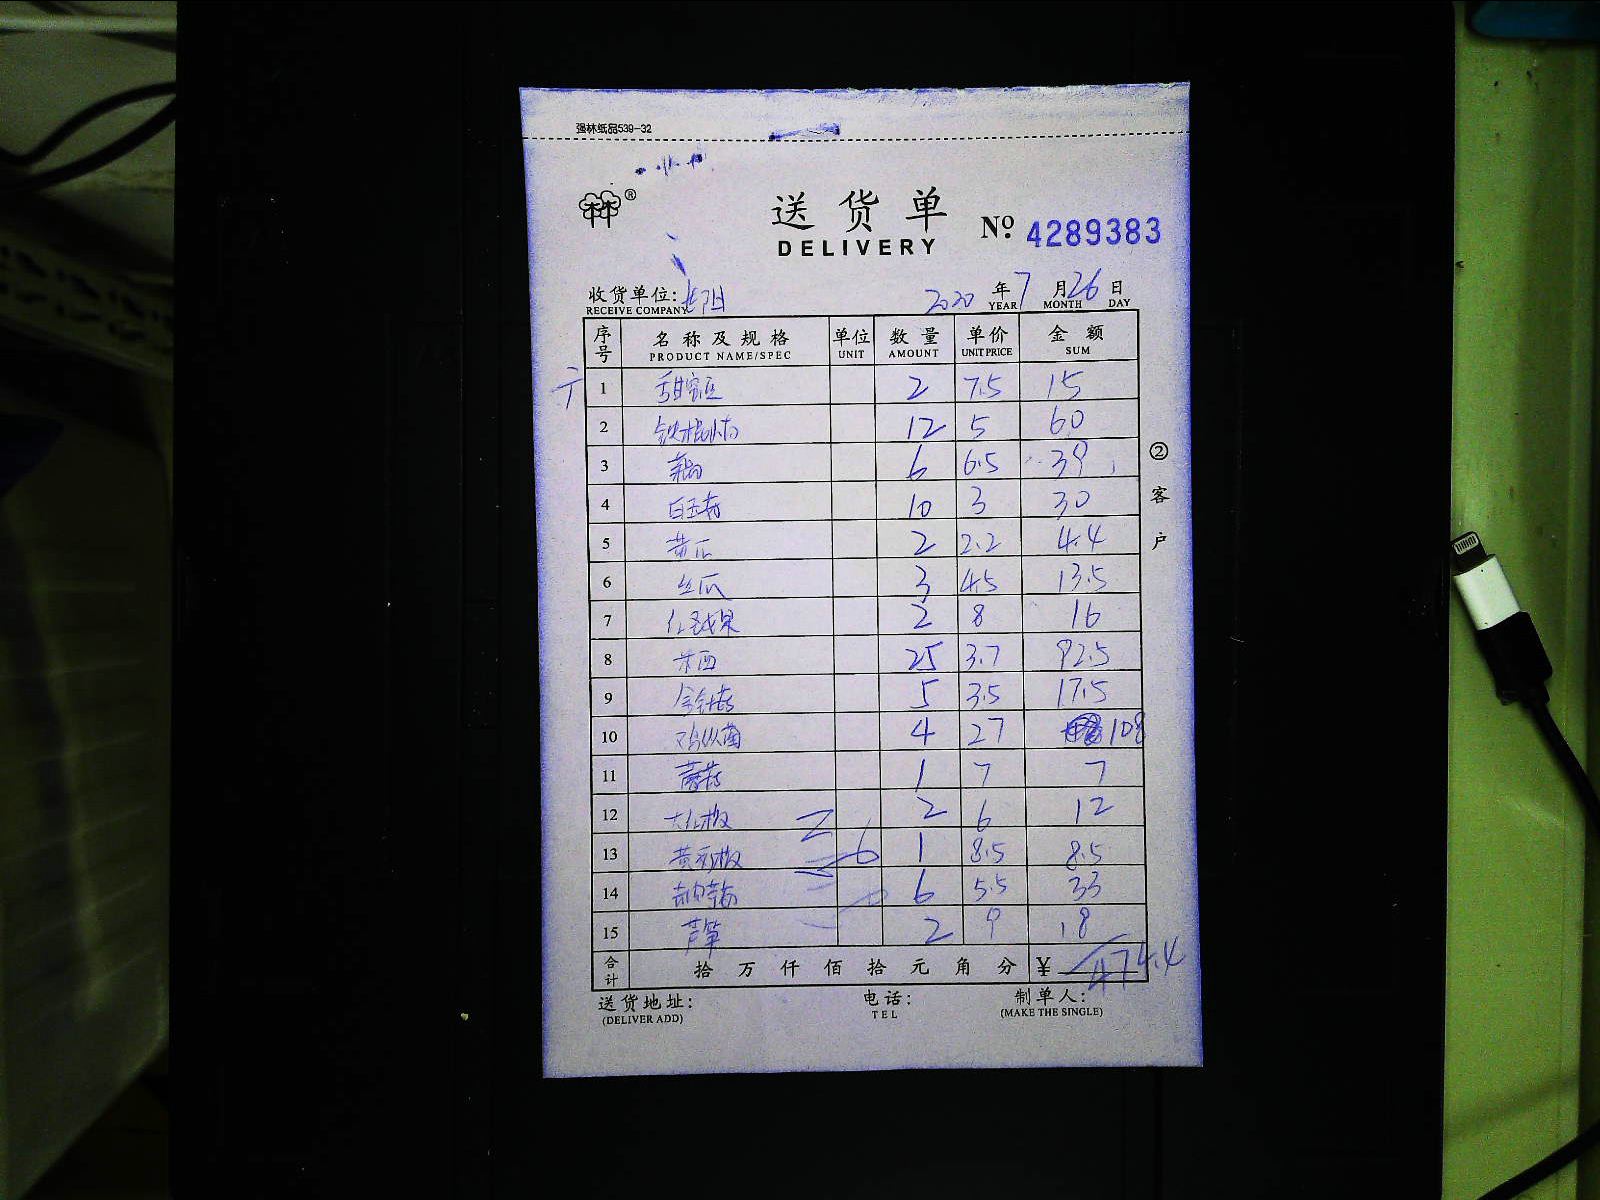 强林纸品539-32
林®
送货单
DELIVERY
№ 4289383
收货单位:
RECEIVE COMPANY
2020 年 7 月 26 日
YEAR MONTH DAY
序号 名称及规格 单位 数量 单价 金额
PRODUCT NAME/SPEC UNIT AMOUNT UNIT PRICE SUM
1 甜蜜豆 2 7.5 15
2 铁棍 12 5 60
3 6 6.5 39
4 白玉菇 10 3 30
5 黄瓜 2 2.2 4.4
6 丝瓜 3 4.5 13.5
7 2 8 16
8 25 3.7 92.5
9 金针菇 5 3.5 17.5
10 鸡纵菌 4 27 108
11 蘑菇 1 7 7
12 大红椒 2 6 12
13 黄彩椒 1 8.5 8.5
14 6 5.5 33
15 芦笋 2 9 18
合计 拾 万 仟 佰 拾 元 角 分 ¥ 474.4
②客户
送货地址: 电话: 制单人:
(DELIVER ADD) TEL (MAKE THE SINGLE)